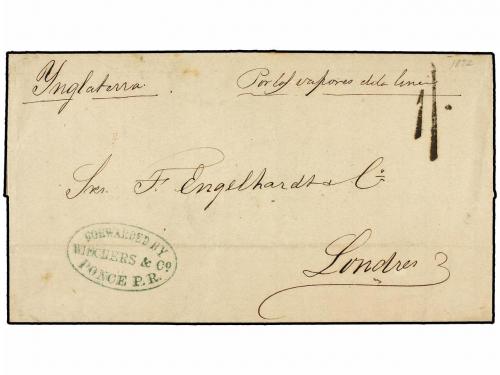 Ynglaterra. Por los vapores de la linea
1872
1/.
Sres. F. Engelhardt & Cº.
Londres
FORWARDED BY
WIECHERS & Cº
PONCE P.R.